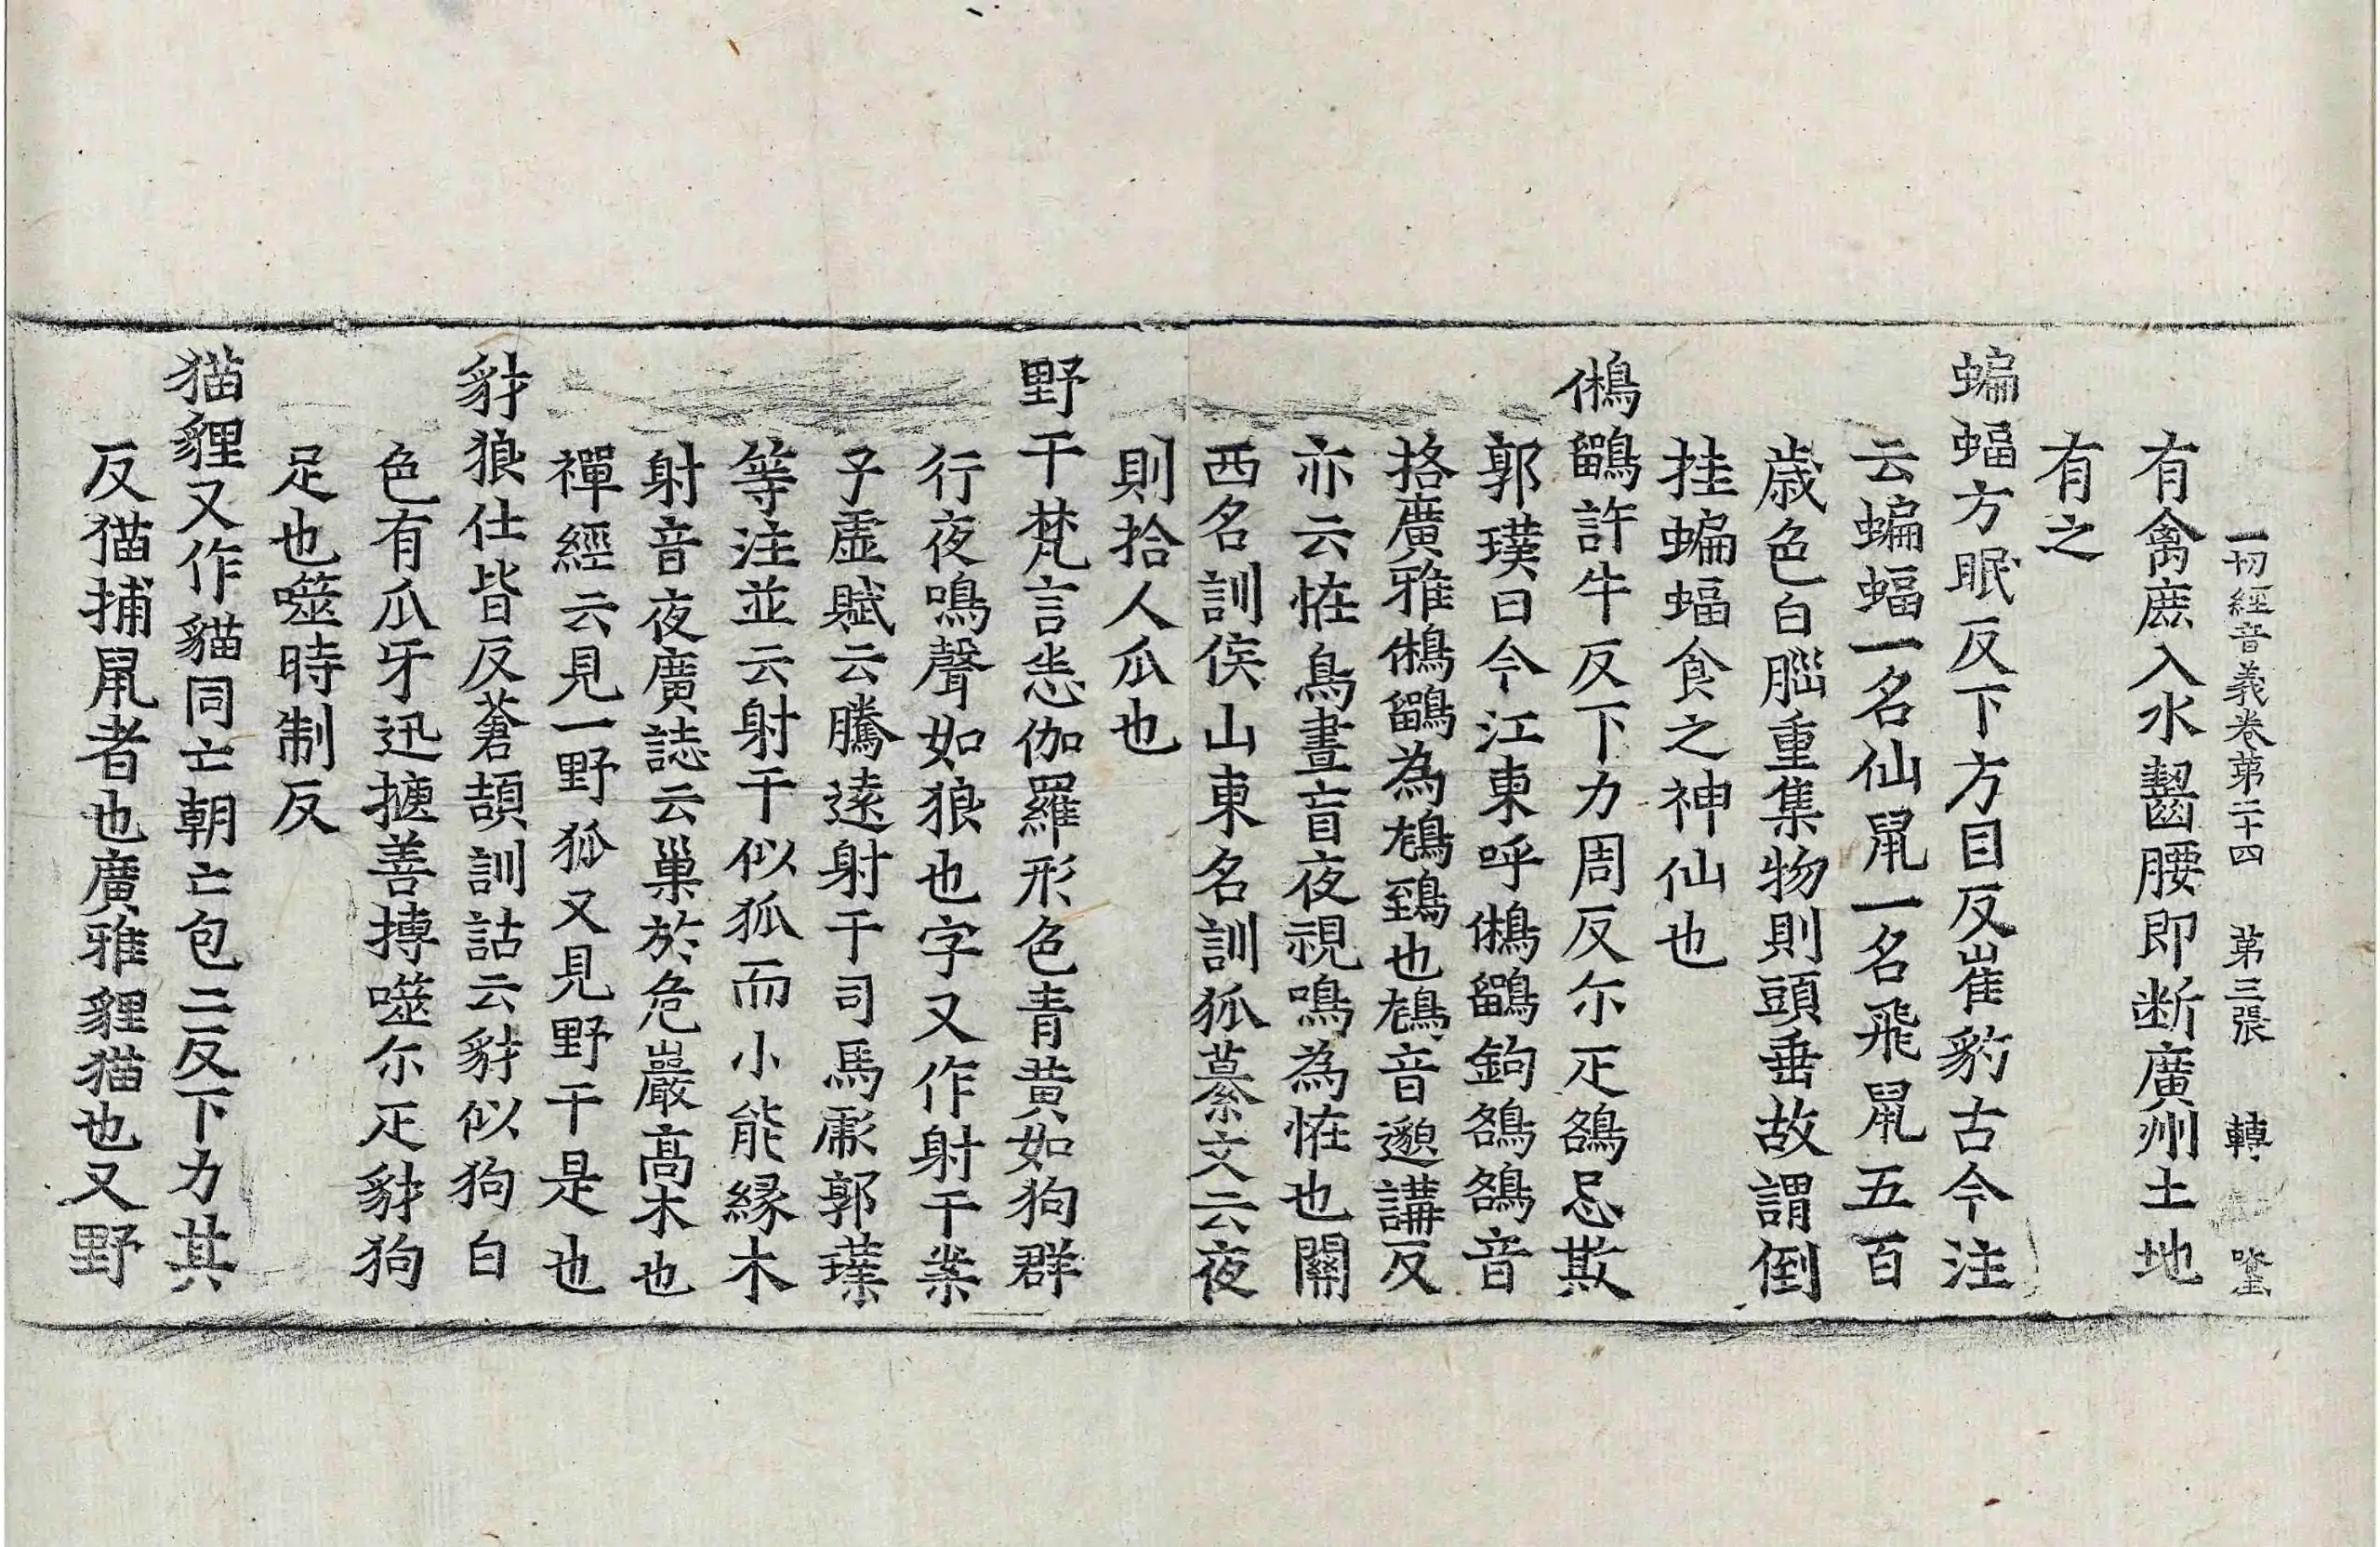 一切經音義卷第二十四　第三張　轉
有禽鹿入水齧腰即断廣州土地
有之
蝙蝠方眠反下方目反崔豹古今注
云蝙蝠一名仙鼠一名飛鼠五百
歳色白腦重集物則頭垂故謂倒
挂蝙蝠食之神仙也
鵂鶹許牛反下力周反尓疋鵅忌欺
郭璞曰今江東呼鵂鶹鉤鵅鵅音
挌廣雅鵂鶹為鴩鵄也鴩音邀講反
亦云恠鳥晝盲夜視鳴為恠也關
西名訓侯山東名訓狐纂文云夜
則拾人爪也
野干梵言恚伽羅形色青黄如狗群
行夜鳴聲如狼也字又作射干案
子虛賦云騰遠射干司馬彪郭璞
等注並云射干似狐而小能縁木
射音夜廣誌云巢於危巖髙木也
禪經云見一野狐又見野干是也
豺狼仕皆反蒼頡訓詁云豺似狗白
色有爪牙迅捷善搏噬尓疋豺狗
足也噬時制反
猫貍又作貓同亡朝亡包二反下力其
反猫捕鼠者也廣雅貍猫也又野